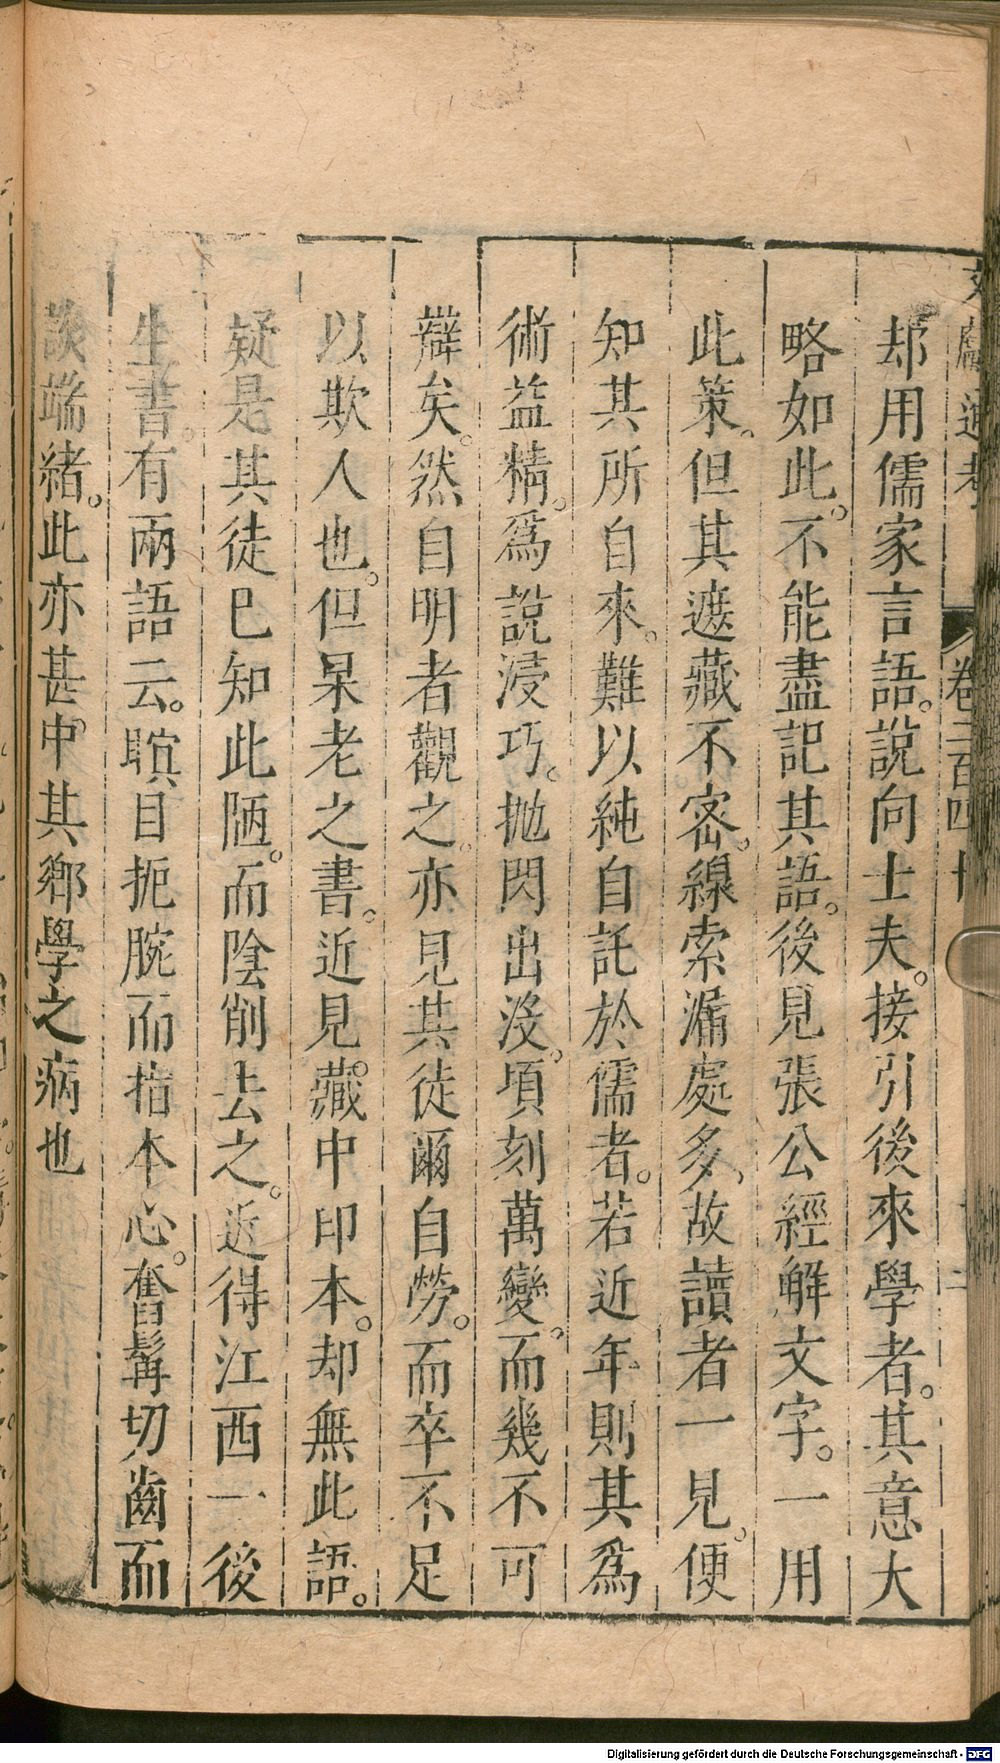 文獻通考 卷二百四十 二
却用儒家言語。說向士夫。接引後來學者。其意大
略如此。不能盡記其語。後見張公經解文字。一用
此策。但其遮藏不密。線索漏處多、故讀者一見。便
知其所自來。難以純自託於儒者。若近年則其爲
術益精。爲說浸巧。拋閃出沒。頃刻萬變。而幾不可
辯矣。然自明者觀之。亦見其徒爾自勞。而卒不足
以欺人也。但杲老之書。近見藏中印本。却無此語。
疑是其徒已知此陋。而陰削去之。近得江西一後
生書。有兩語云。瞋目扼腕而指本心。奮髯切齒而
談端緒。此亦甚中其鄉學之病也
Digitalisierung gefördert durch die Deutsche Forschungsgemeinschaft - DFG